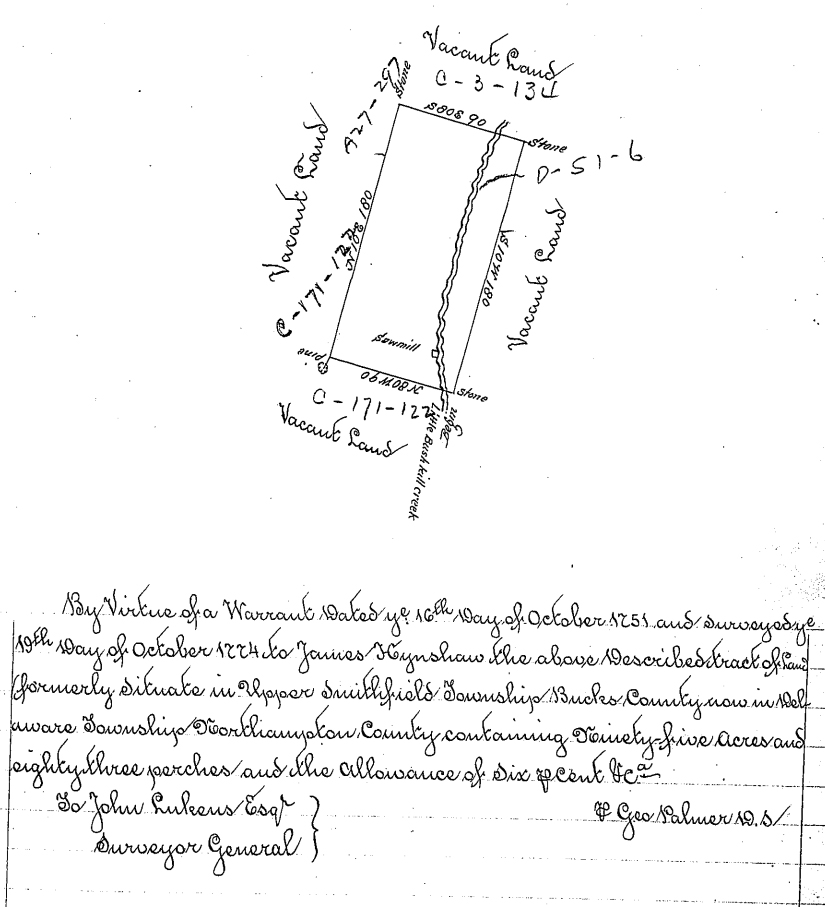 Vacant Land
C-3-134
A27-297
stone
S80E 90
stone
D-51-6
Vacant Land
N10E 180
C-171-122
S10W 180
Vacant Land
sawmill
pine
N80W 90
stone
C-171-122
Vacant Land
Begin'g
Little Bushkill creek
By Virtue of a Warrant Dated ye 16th Day of October 1751 and surveyed ye
19th Day of October 1774 to James Hynshaw the above Described tract of Land
formerly Situate in Upper Smithfield Township Bucks County now in Del
aware Township Northampton County containing Ninety-five Acres and
eighty three perches and the Allowance of Six ⅌ Cent &Ca
To John Lukens Esqr
Surveyor General
⅌ Geo Palmer D.S